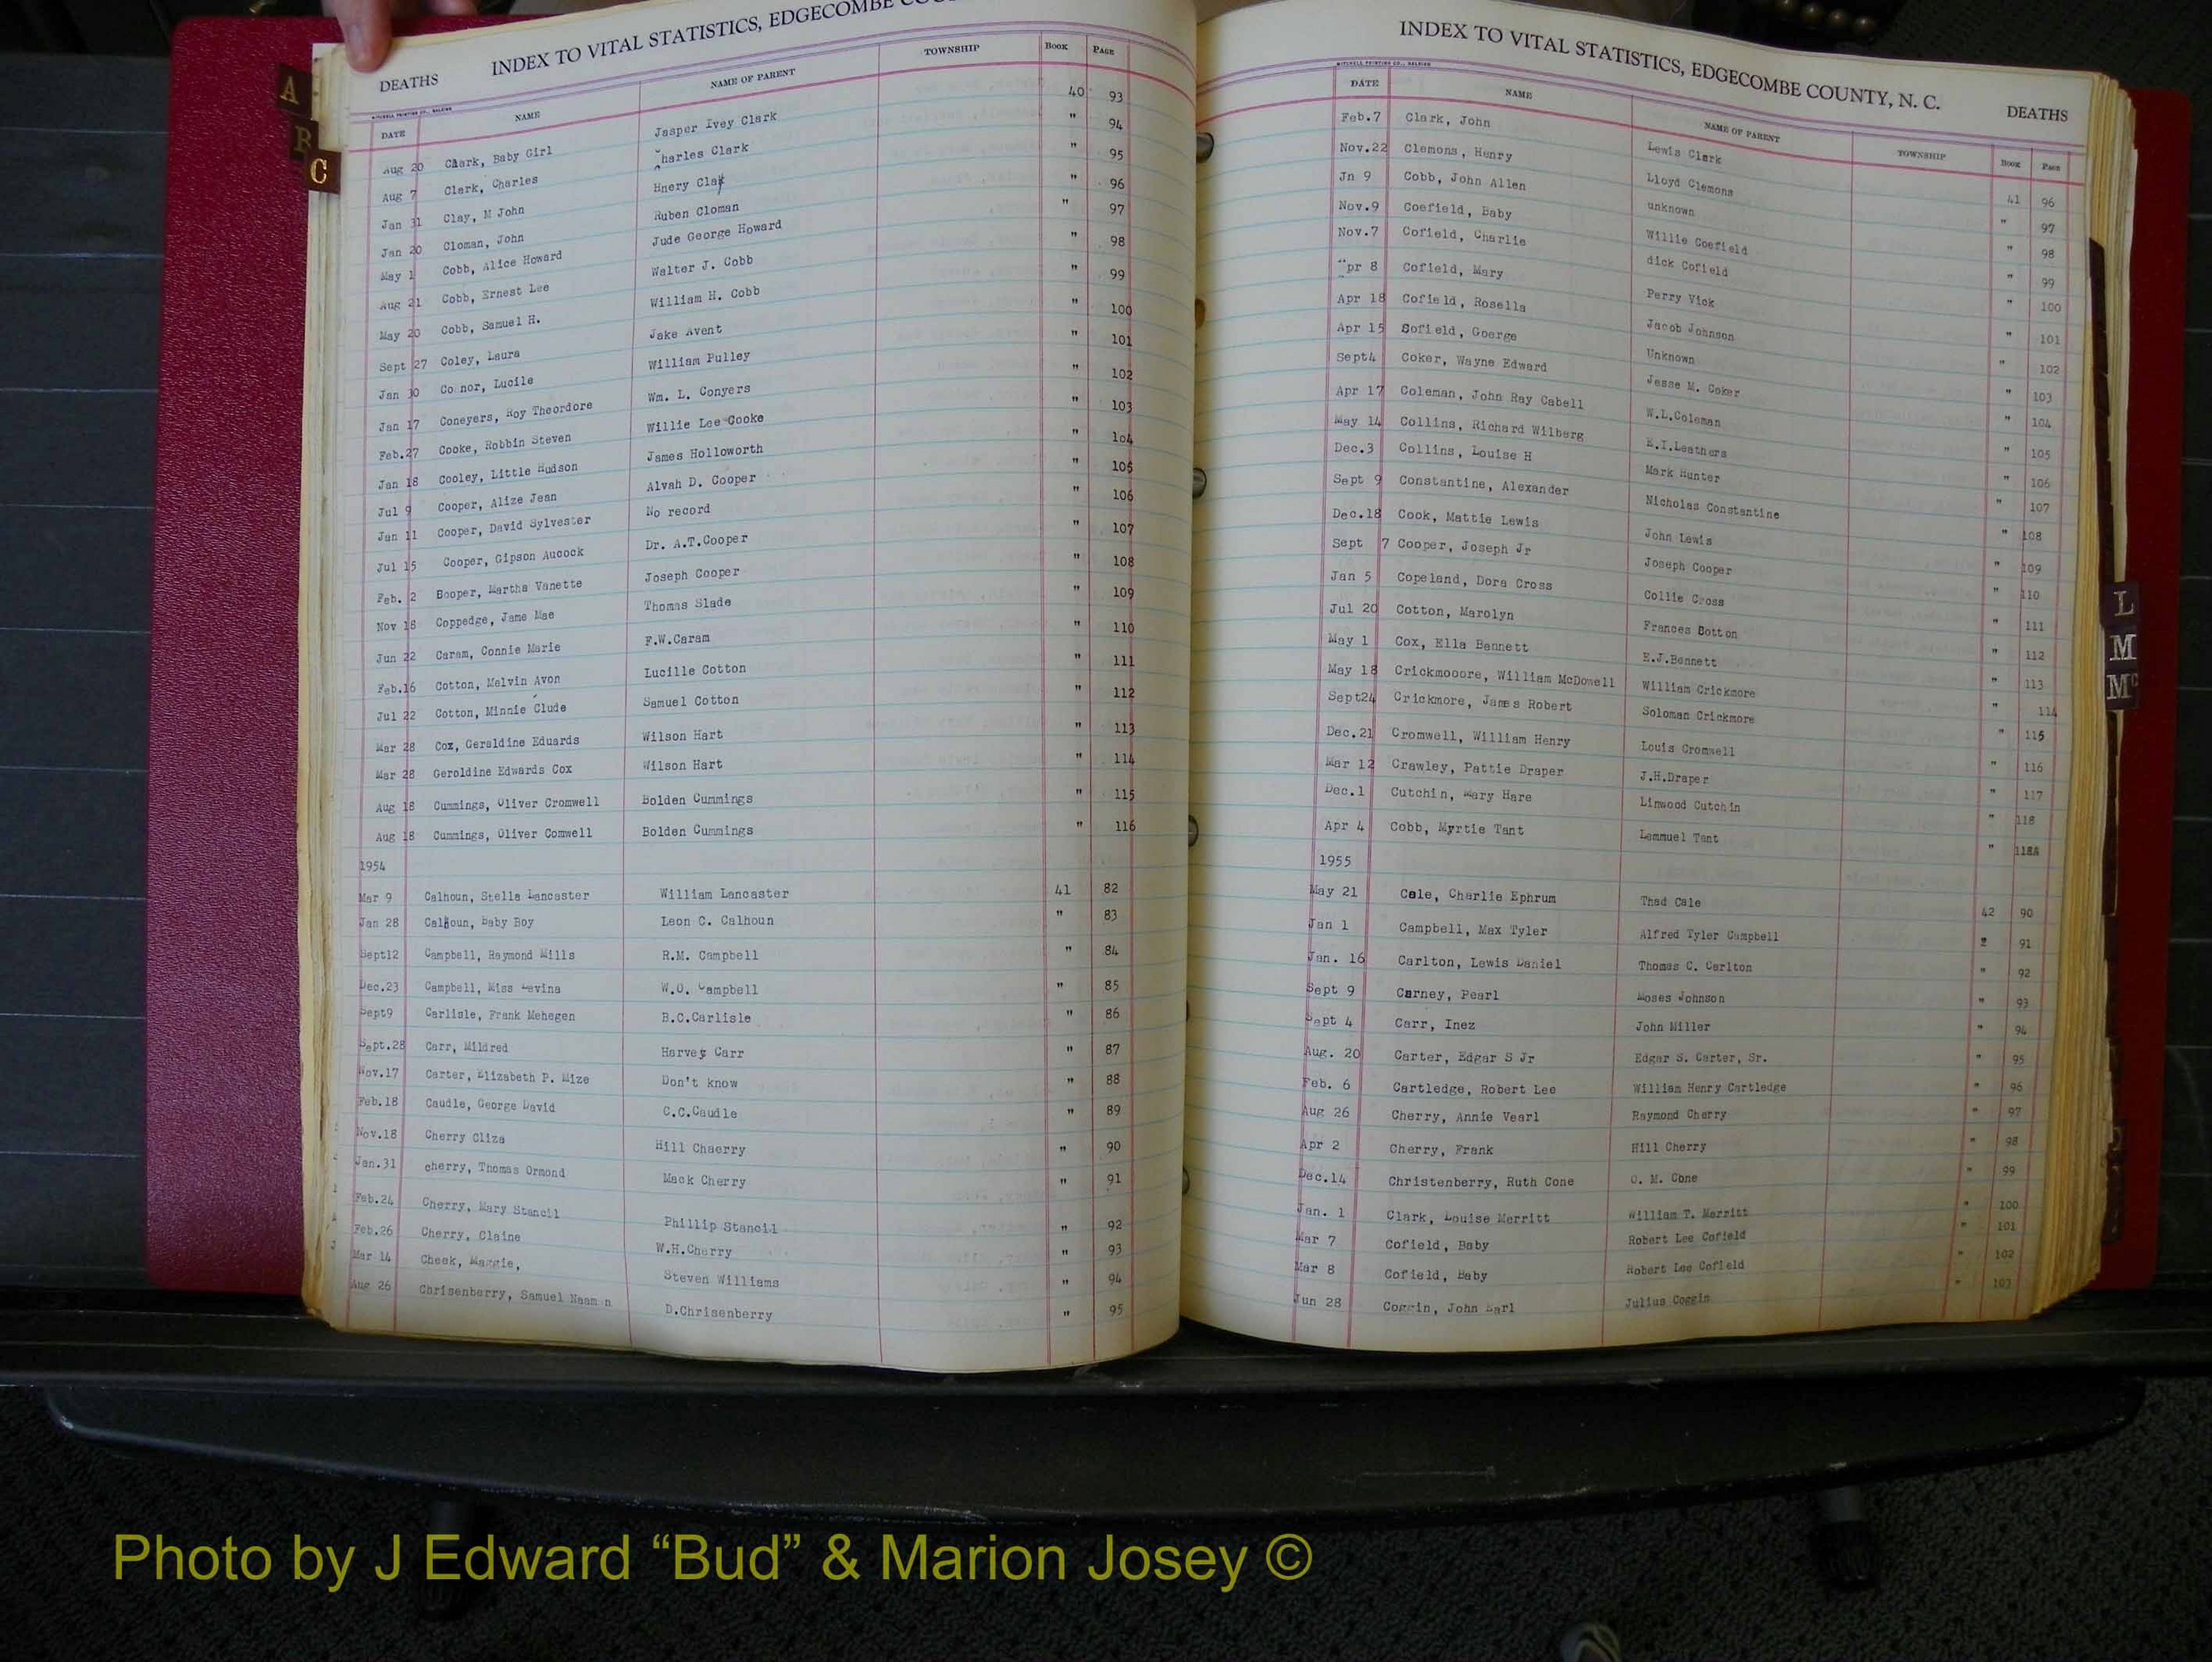 A
B
C
DEATHS INDEX TO VITAL STATISTICS, EDGECOMBE
MITCHELL PRINTING CO., RALEIGH
DATE NAME NAME OF PARENT TOWNSHIP BOOK PAGE
Aug 20 Clark, Baby Girl Jasper Ivey Clark 40 93
Aug 7 Clark, Charles Charles Clark " 94
Jan 31 Clay, M John Hnery Clay " 95
Jan 20 Cloman, John Ruben Cloman " 96
May 1 Cobb, Alice Howard Jude George Howard " 97
Aug 21 Cobb, Ernest Lee Walter J. Cobb " 98
May 20 Cobb, Samuel H. William H. Cobb " 99
Sept 27 Coley, Laura Jake Avent " 100
Jan 30 Co nor, Lucile William Pulley " 101
Jan 17 Coneyers, Roy Theordore Wm. L. Conyers " 102
Feb.27 Cooke, Robbin Steven Willie Lee Cooke " 103
Jan 18 Cooley, Little Hudson James Holloworth " 104
Jul 9 Cooper, Alize Jean Alvah D. Cooper " 105
Jan 11 Cooper, David Sylvester No record " 106
Jul 15 Cooper, Gipson Aucock Dr. A.T.Cooper " 107
Feb. 2 Booper, Martha Vanette Joseph Cooper " 108
Nov 18 Coppedge, Jame Mae Thomas Slade " 109
Jun 22 Caram, Connie Marie F.W.Caram " 110
Feb.16 Cotton, Melvin Avon Lucille Cotton " 111
Jul 22 Cotton, Minnie Clude Samuel Cotton " 112
Mar 28 Cox, Geraldine Eduards Wilson Hart " 113
Mar 28 Geroldine Edwards Cox Wilson Hart " 114
Aug 18 Cummings, Oliver Cromwell Bolden Cummings " 115
Aug 18 Cummings, Oliver Comwell Bolden Cummings " 116
1954
Mar 9 Calhoun, Stella Lancaster William Lancaster 41 82
Jan 28 Calhoun, Baby Boy Leon C. Calhoun " 83
Sept12 Campbell, Raymond Mills R.M. Campbell " 84
Dec.23 Campbell, Miss Levina W.O. Campbell " 85
Sept9 Carlisle, Frank Mehegen B.C.Carlisle " 86
Sept.28 Carr, Mildred Harvey Carr " 87
Nov.17 Carter, Elizabeth P. Mize Don't know " 88
Feb.18 Caudle, George David C.C.Caudle " 89
Nov.18 Cherry Cliza Hill Chaerry " 90
Jan.31 cherry, Thomas Ormond Mack Cherry " 91
Feb.24 Cherry, Mary Stancil Phillip Stancil " 92
Feb.26 Cherry, Claine W.H.Cherry " 93
Mar 14 Cheek, Maggie, Steven Williams " 94
Aug 26 Chrisenberry, Samuel Naam n D.Chrisenberry " 95
INDEX TO VITAL STATISTICS, EDGECOMBE COUNTY, N. C. DEATHS
MITCHELL PRINTING CO., RALEIGH
DATE NAME NAME OF PARENT TOWNSHIP BOOK PAGE
Feb.7 Clark, John Lewis Clark 41 96
Nov.22 Clemons, Henry Lloyd Clemons " 97
Jn 9 Cobb, John Allen unknown " 98
Nov.9 Coefield, Baby Willie Coefield " 99
Nov.7 Cofield, Charlie dick Cofield " 100
Apr 8 Cofield, Mary Perry Vick " 101
Apr 18 Cofield, Rosella Jacob Johnson " 102
Apr 15 Sofield, Goerge Unknown " 103
Sept4 Coker, Wayne Edward Jesse M. Coker " 104
Apr 17 Coleman, John Ray Cabell W.L.Coleman " 105
May 14 Collins, Richard Wilberg E.I.Leathers " 106
Dec.3 Collins, Louise H Mark Hunter " 107
Sept 9 Constantine, Alexander Nicholas Constantine " 108
Dec.18 Cook, Mattie Lewis John Lewis " 109
Sept 7 Cooper, Joseph Jr Joseph Cooper " 110
Jan 5 Copeland, Dora Cross Collie Cross " 111
Jul 20 Cotton, Marolyn Frances Botton " 112
May 1 Cox, Ella Bennett E.J.Bennett " 113
May 18 Crickmooore, William McDowell William Crickmore " 114
Sept24 Crickmore, James Robert Soloman Crickmore " 115
Dec.21 Cromwell, William Henry Louis Cromwell " 116
Mar 12 Crawley, Pattie Draper J.H.Draper " 117
Dec.1 Cutchin, Mary Hare Linwood Cutchin " 118
Apr 4 Cobb, Myrtie Tant Lemmuel Tant " 118A
1955
May 21 Cale, Charlie Ephrum Thad Cale 42 90
Jan 1 Campbell, Max Tyler Alfred Tyler Campbell " 91
Jan. 16 Carlton, Lewis Daniel Thomas C. Carlton " 92
Sept 9 Carney, Pearl Moses Johnson " 93
Sept 4 Carr, Inez John Miller " 94
Aug. 20 Carter, Edgar S Jr Edgar S. Carter, Sr. " 95
Feb. 6 Cartledge, Robert Lee William Henry Cartledge " 96
Aug 26 Cherry, Annie Vearl Raymond Cherry " 97
Apr 2 Cherry, Frank Hill Cherry " 98
Dec.14 Christenberry, Ruth Cone O. M. Cone " 99
Jan. 1 Clark, Louise Merritt William T. Merritt " 100
Mar 7 Cofield, Baby Robert Lee Cofield " 101
Mar 8 Cofield, Baby Robert Lee Cofield " 102
Jun 28 Coggin, John Earl Julius Coggin " 103
L
M
Mc
Photo by J Edward “Bud” & Marion Josey ©